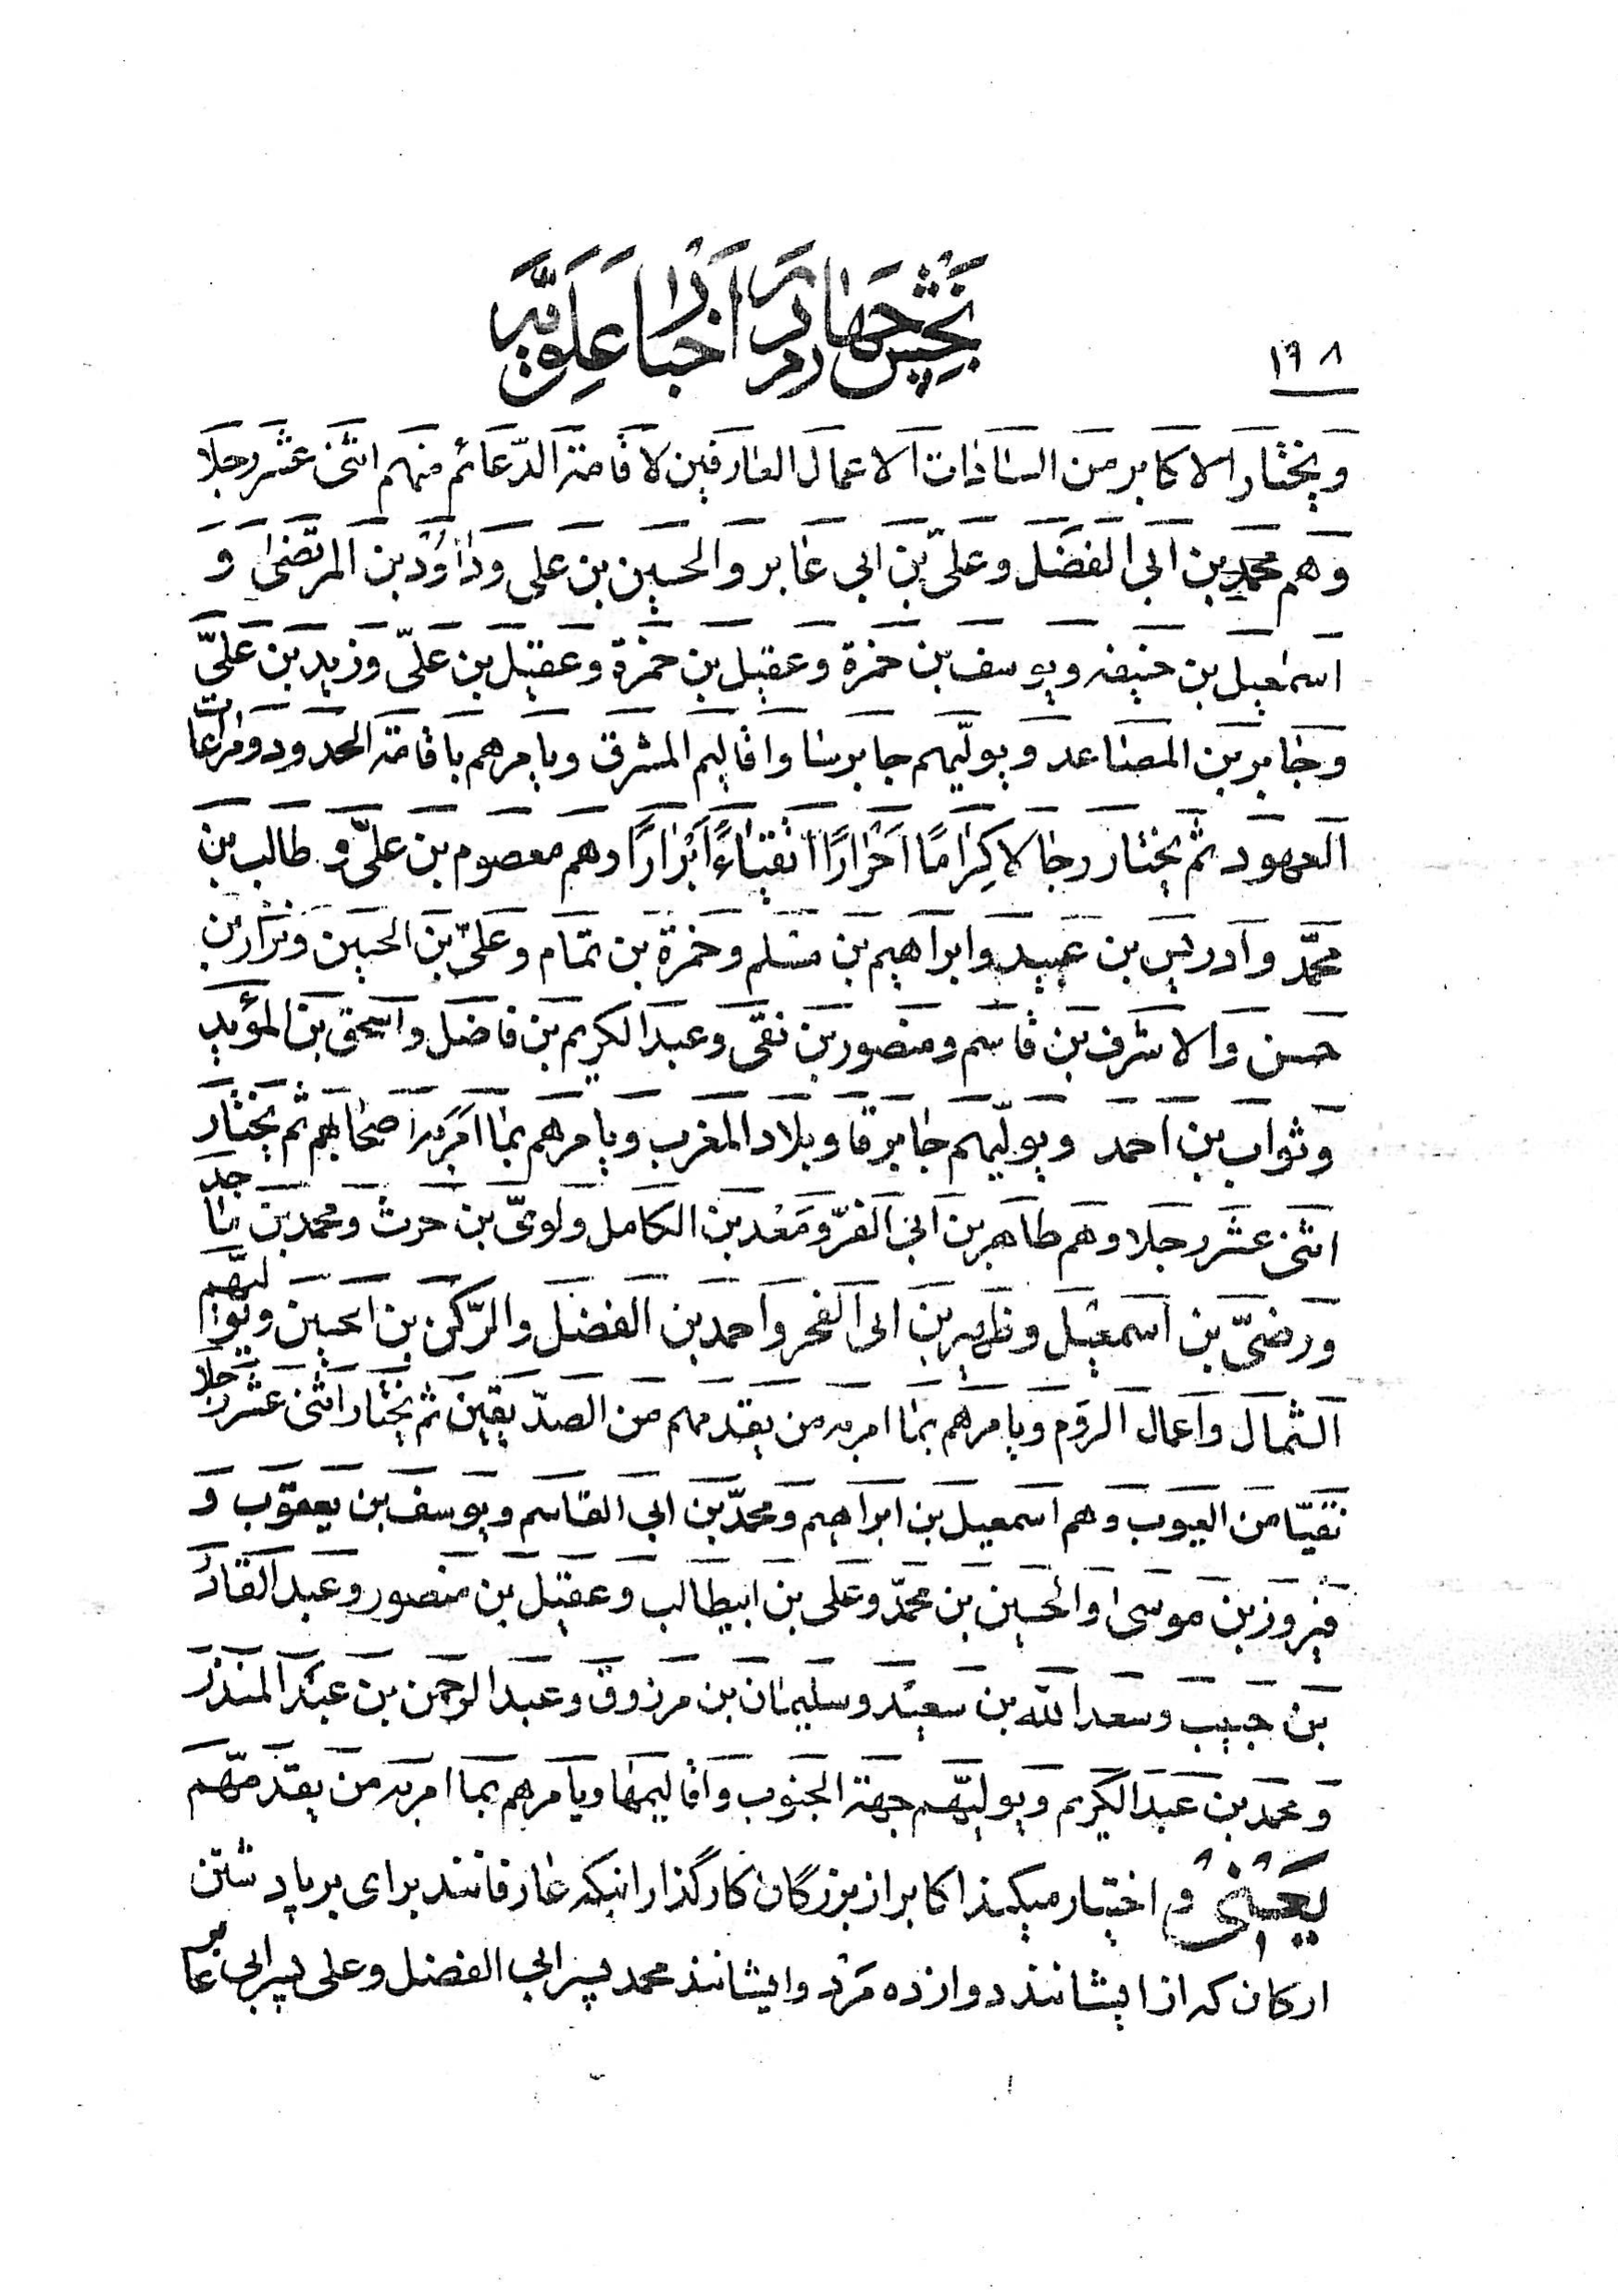 بخش چهارم در اخبار علویه
۱۹۸
ویختار الاکابر من السادات الاعمال العارفین لاقامة الدعائم منهم اثنی عشر رجلا
وهم محمد بن ابی الفضل وعلی بن ابی عابر والحسین بن علی وداود بن المرتضی و
اسمعیل بن حنیفه ویوسف بن حمزة وعقیل بن حمزة وعقیل بن علی وزید بن علی
وجابر بن المصاعد ویولیهم جابرسا واقالیم المشرق ویامرهم باقامة الحدود ومراعات
العهود ثم یختار رجالا کِرامًا اَحْرارًا اتقیاءً اَبْرارًا وهم معصوم بن علی و طالب بن
محمد وادریس بن عبید وابراهیم بن مسلم وحمزة بن تمام وعلی بن الحسین ونزار بن
حسن والاشرف بن قاسم ومنصور بن تقی وعبد الکریم بن فاضل واسحق بن المؤید
وثواب بن احمد ویولیهم جابرقا وبلاد المغرب ویامرهم بما امر به اصحابهم ثم یختار
اثنی عشر رجلا وهم طاهر بن ابی الفرو معد بن الکامل ولوی بن حرث ومحمد بن ماجد
ورضی بن اسمعیل وظهیر بن ابی الفخر واحمد بن الفضل والرکن بن الحسین ویولیهم
الشمال واعمال الروم ویامرهم بما امر به من یقدمهم من الصدیقین ثم یختار اثنی عشر رجلا
نقیّا من العیوب وهم اسمعیل بن ابراهیم ومحمد بن ابی القاسم ویوسف بن یعقوب و
فیروز بن موسی والحسین بن محمد وعلی بن ابیطالب وعقیل بن منصور وعبد القادر
بن حبیب وسعد الله بن سعید وسلیمان بن مرزوق وعبد الرحمن بن عبد المنذر
و محمد بن عبد الکریم ویولیهم جهة الجنوب واقالیمها ویامرهم بما امر به من یقدمهم
یعنی و اختیار میکند اکابر از بزرگان کارگذارانیکه عارفانند برای برپاد شتن
ارکان که از ایشانند دوازده مرد وایشانند محمد پسر ابی الفضل وعلی پسر ابی عابر